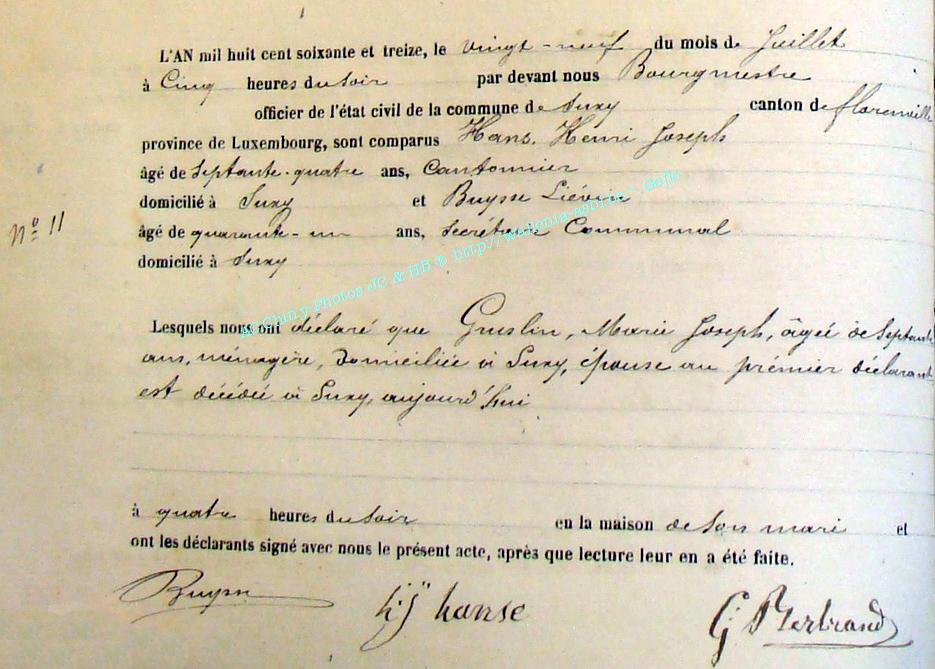 L'AN mil huit cent soixante et treize, le vingt-neuf du mois de Juillet
à Cinq heures du soir par devant nous Bourgmestre
officier de l'état civil de la commune de Suxy canton de florenville
province de Luxembourg, sont comparus Hans, Henri Joseph
âgé de septante-quatre ans, Cantonnier
domicilié à Suxy et Buysse Liévin
N° 11
âgé de quarante-un ans, Secrétaire Communal
domicilié à Suxy
Lesquels nous ont déclaré que Guslin, Marie Joseph, âgée de septante
ans, ménagère, domiciliée à Suxy, épouse au prémier déclarant
est décédée à Suxy, aujourd'hui
à quatre heures du soir en la maison de son mari et
ont les déclarants signé avec nous le présent acte, après que lecture leur en a été faite.
Buysse hj hanse G Bertrand
Chiny Photos JG & HB © http://